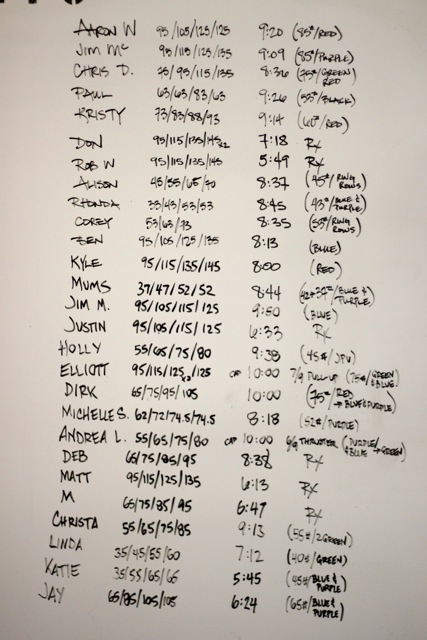 AARON W 95/105/125/125 9:20 (85#/RED)
JIM MC 95/115/125/135 9:09 (85#/PURPLE)
CHRIS D. 75/95/115/135 8:36 (75#/GREEN/RED)
PAUL 63/63/83/63 9:26 (55#/BLACK)
KRISTY 73/83/88/93 9:14 (60#/RED)
DON 95/115/135/145 7:18 Rx
ROB W 95/115/135/145 5:49 Rx
ALISON 45/55/65/70 8:37 (45#/RING ROWS)
RHONDA 33/43/53/53 8:45 (43#/BLUE & PURPLE)
COREY 53/63/73 8:35 (53#/RING ROWS)
BEN 95/105/125/135 8:13 (BLUE)
KYLE 95/115/135/145 8:00 (RED)
MUMS 37/47/52/52 8:44 (42→37#/BLUE & PURPLE)
JIM M. 95/105/115/125 9:50 (BLUE)
JUSTIN 95/105/115/125 6:33 Rx
HOLLY 55/65/75/80 9:38 (45#/JPU)
ELLIOTT 95/115/125/125 CAP 10:00 7/9 PULL-UP (75#/GREEN & BLUE)
DIRK 65/75/95/105 10:00 (75#/RED → BLUE & PURPLE)
MICHELLE S. 62/72/74.5/74.5 8:18 (52#/PURPLE)
ANDREA L. 55/65/75/80 CAP 10:00 6/9 THRUSTER (PURPLE & BLUE → GREEN)
DEB 65/75/85/95 8:38 Rx
MATT 95/115/125/135 6:13 Rx
M 65/75/85/95 6:47 Rx
CHRISTA 55/65/75/85 9:13 (55#/2GREEN)
LINDA 35/45/55/60 7:12 (40#/GREEN)
KATIE 35/55/65/65 5:45 (45#/BLUE & PURPLE)
JAY 65/85/105/105 6:24 (65#/BLUE & PURPLE)